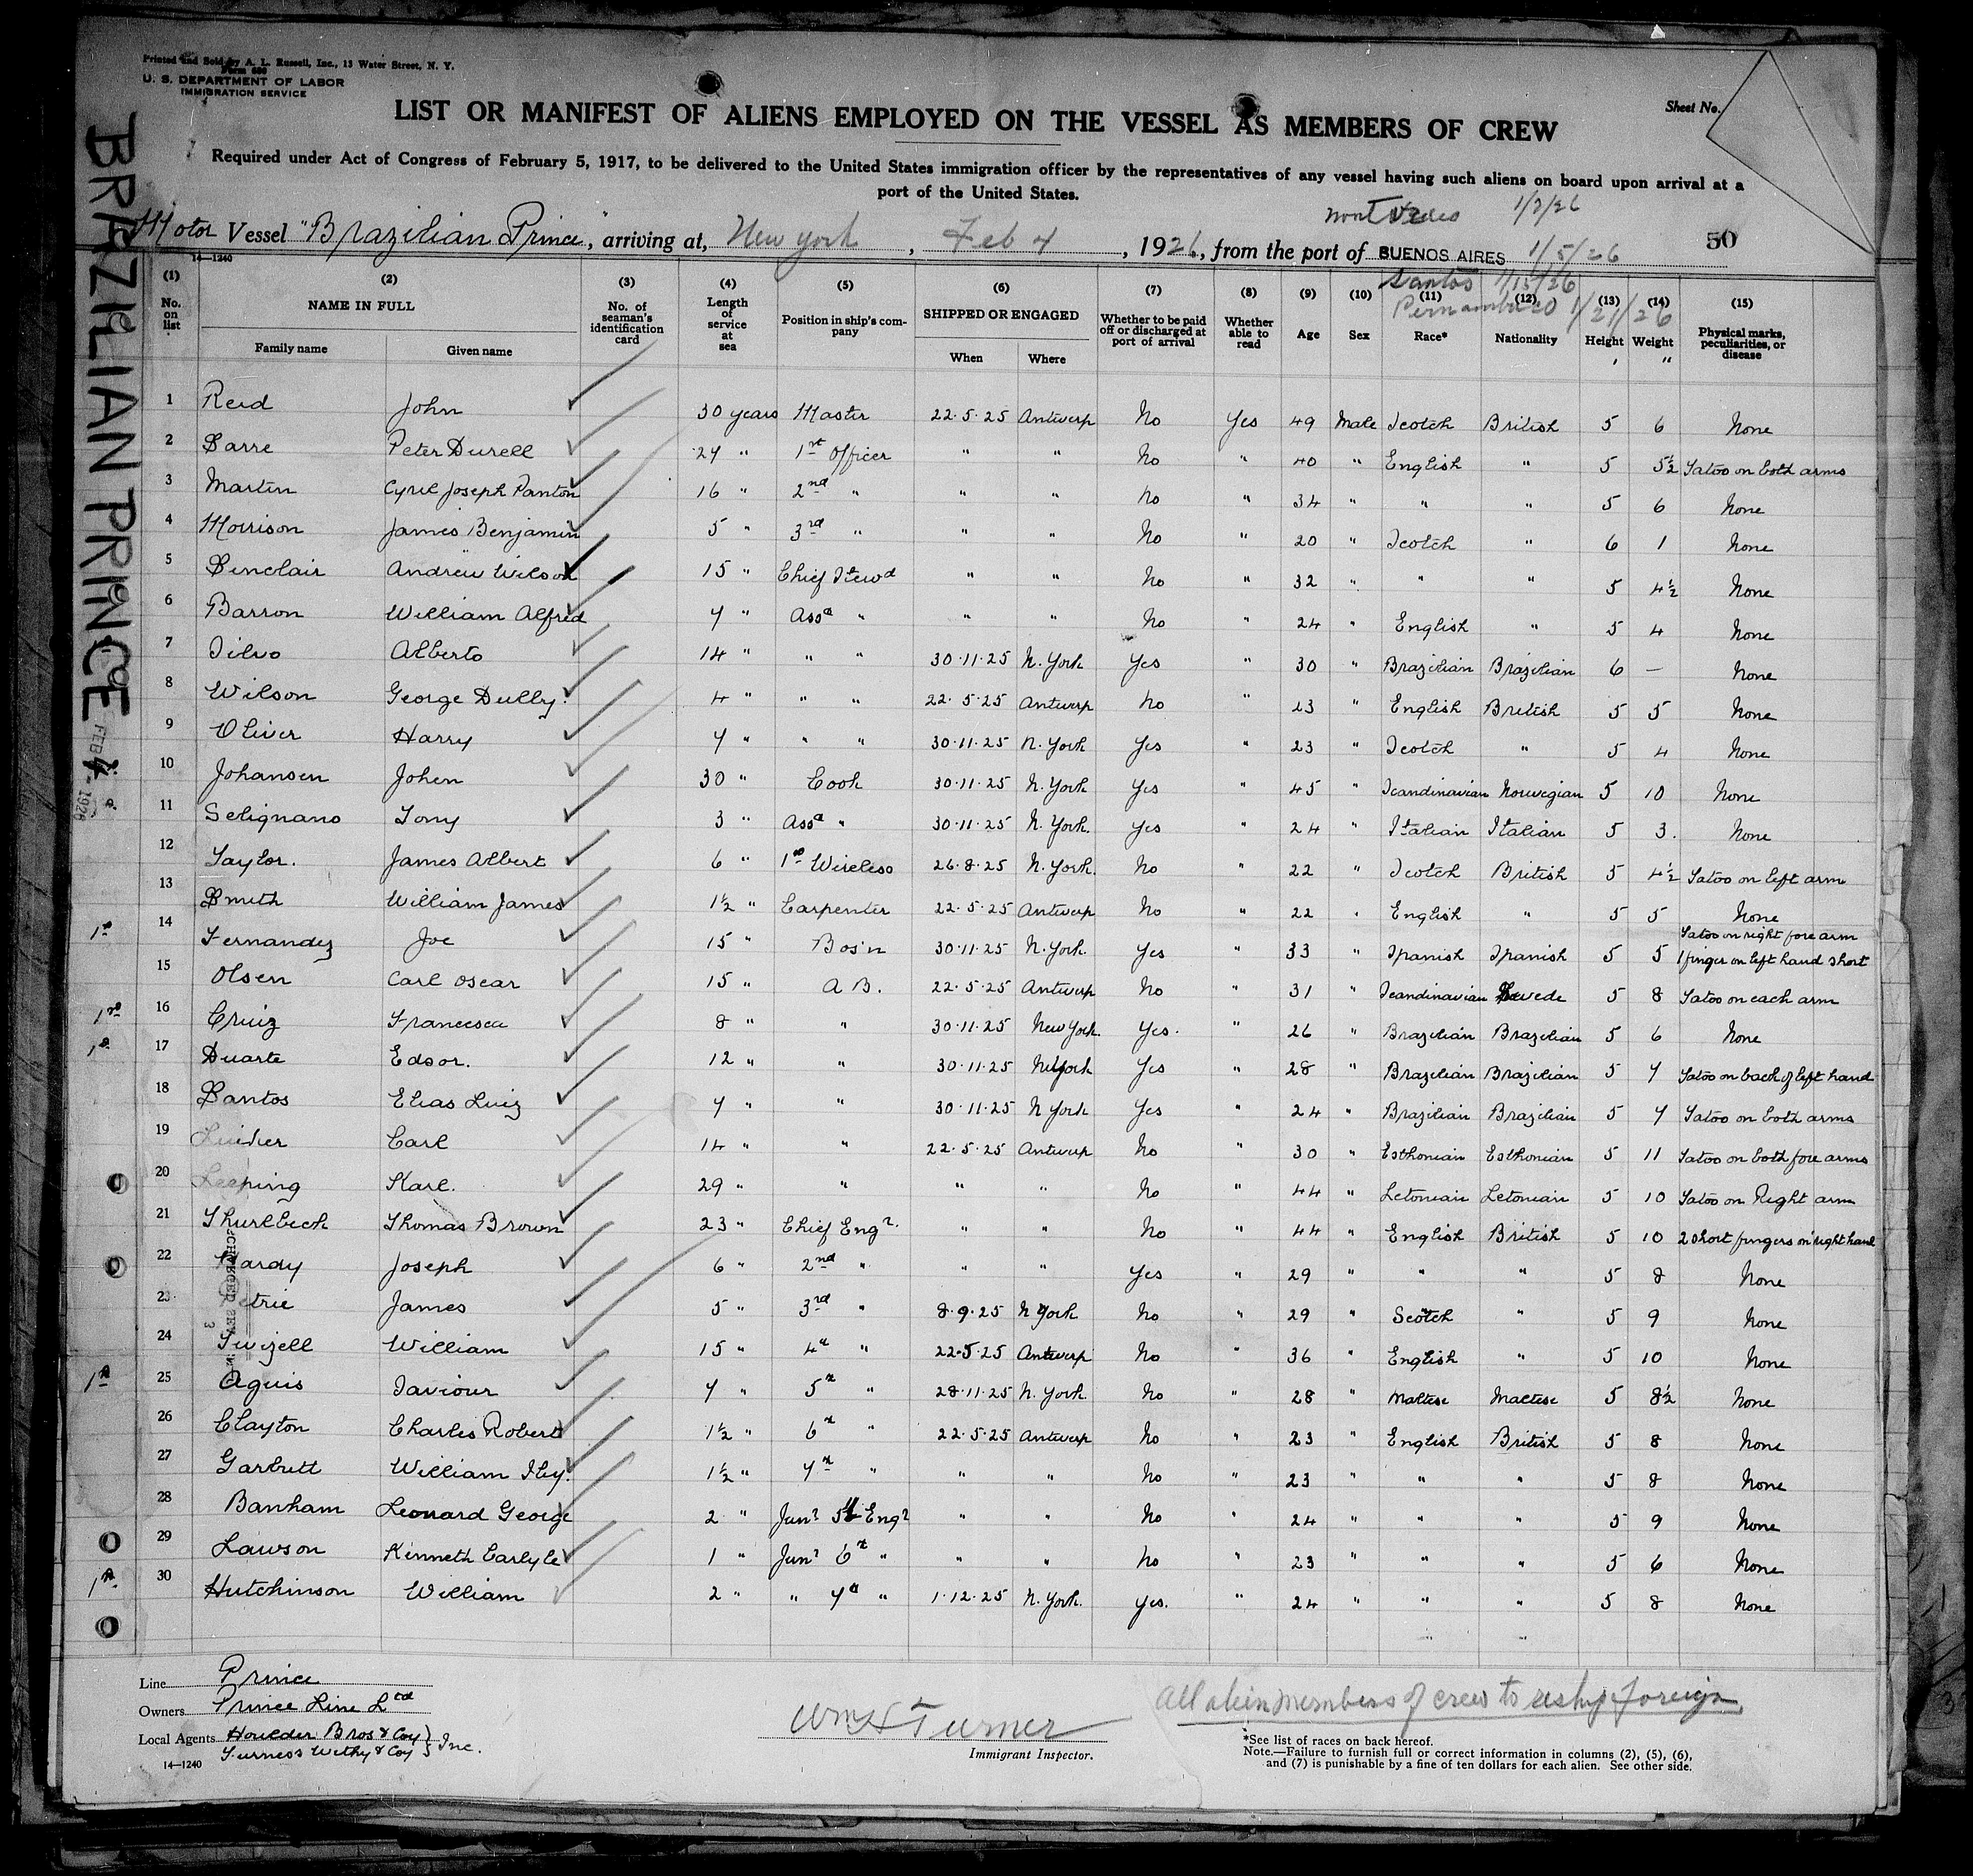 Printed and Sold by A. L. Russell, Inc., 13 Water Street, N. Y.
Form 686
U. S. DEPARTMENT OF LABOR
IMMIGRATION SERVICE
Sheet No.
LIST OR MANIFEST OF ALIENS EMPLOYED ON THE VESSEL AS MEMBERS OF CREW
Required under Act of Congress of February 5, 1917, to be delivered to the United States immigration officer by the representatives of any vessel having such aliens on board upon arrival at a
port of the United States.
1/2/26
Motor Vessel "Brazilian Prince", arriving at, New York, Feb 4, 1926, from the port of BUENOS AIRES 1/5/26
50
Santos 1/15/26
Pernambuco 1/21/26
BRAZILIAN PRINCE
FEB 4 1926
14—1240
(1) (2) (3) (4) (5) (6) (7) (8) (9) (10) (11) (12) (13) (14) (15)
No. on list NAME IN FULL Family name Given name No. of seaman's identification card Length of service at sea Position in ship's company SHIPPED OR ENGAGED When Where Whether to be paid off or discharged at port of arrival Whether able to read Age Sex Race* Nationality Height Weight Physical marks, peculiarities, or disease
1 Reid John 30 years Master 22.5.25 Antwerp No Yes 49 Male Scotch British 5 6 None
2 Sarre Peter Durell 27 " 1st Officer " " No " 40 " English " 5 5½ Tatoo on both arms
3 Martin Cyril Joseph Panton 16 " 2nd " " " No " 34 " " " 5 6 None
4 Morrison James Benjamin 5 " 3rd " " " No " 20 " Scotch " 6 1 None
5 Sinclair Andrew Wilson 15 " Chief Stewd " " No " 32 " " " 5 4½ None
6 Barron William Alfred 7 " Asst " " " No " 24 " English " 5 4 None
7 Silvo Alberto 14 " " " 30.11.25 N. York Yes " 30 " Brazilian Brazilian 6 — None
8 Wilson George Dully. 4 " " " 22.5.25 Antwerp No " 23 " English British 5 5 None
9 Oliver Harry 7 " " " 30.11.25 N. York Yes " 23 " Scotch " 5 4 None
10 Johansen Johen 30 " Cook 30.11.25 N. York Yes " 45 " Scandinavian Norwegian 5 10 None
11 Setignano Tony 3 " Asst " 30.11.25 N. York. Yes " 24 " Italian Italian 5 3. None
12 Taylor. James Albert 6 " 1st Wireless 26.8.25 N. York. No " 22 " Scotch British 5 4½ Tatoo on left arm
13 Smith William James 1½ " Carpenter 22.5.25 Antwerp No " 22 " English " 5 5 None
1st 14 Fernandez Joe 15 " Bos'n 30.11.25 N. York. Yes " 33 " Spanish Spanish 5 5 Tatoo on right fore arm 1 finger on left hand short
15 Olsen Carl Oscar 15 " A B. 22.5.25 Antwerp No " 31 " Scandinavian Swede 5 8 Tatoo on each arm
1st 16 Cruiz Francesca 8 " " 30.11.25 New York. Yes. " 26 " Brazilian Brazilian 5 6 None
1st 17 Duarte Edsor. 12 " " 30.11.25 N York Yes " 28 " Brazilian Brazilian 5 7 Tatoo on back of left hand
18 Santos Elias Luiz 7 " " 30.11.25 N York Yes " 24 " Brazilian Brazilian 5 7 Tatoo on both arms
19 Carl 14 " " 22.5.25 Antwerp No " 30 " Esthonian Esthonian 5 11 Tatoo on both fore arms
20 Karl. 29 " " " " No " 44 " Letonian Letonian 5 10 Tatoo on Right arm
21 Thurlbeck Thomas Brown 23 " Chief Engr. " " No " 44 " English British 5 10 2 short fingers on right hand
22 Hardy Joseph 6 " 2nd " " " Yes " 29 " " " 5 8 None
23 Petrie James 5 " 3rd " 8.9.25 N York No " 29 " Scotch " 5 9 None
24 Twizell William 15 " 4th " 22.5.25 Antwerp No " 36 " English " 5 10 None
1st 25 Aguis Saviour 7 " 5th " 28.11.25 N. York. No " 28 " Maltese Maltese 5 8½ None
26 Clayton Charles Robert 1½ " 6th " 22.5.25 Antwerp No " 23 " English British 5 8 None
27 Garbutt William Hy. 1½ " 7th " " " No " 23 " " " 5 8 None
28 Banham Leonard George 2 " Junr 5th Engr " " No " 24 " " " 5 9 None
29 Lawson Kenneth Carlyle 1 " Junr 6th " " " No " 23 " " " 5 6 None
1st 30 Hutchinson William 2 " " 7th " 1.12.25 N. York. Yes. " 24 " " " 5 8 None
Line Prince
Owners Prince Line Ltd
Local Agents Houlder Bros & Coy } Inc.
Furness Withy & Coy
14—1240
Wm H Turner
Immigrant Inspector.
All alien members of crew to reship foreign
*See list of races on back hereof.
Note.—Failure to furnish full or correct information in columns (2), (5), (6),
and (7) is punishable by a fine of ten dollars for each alien. See other side.